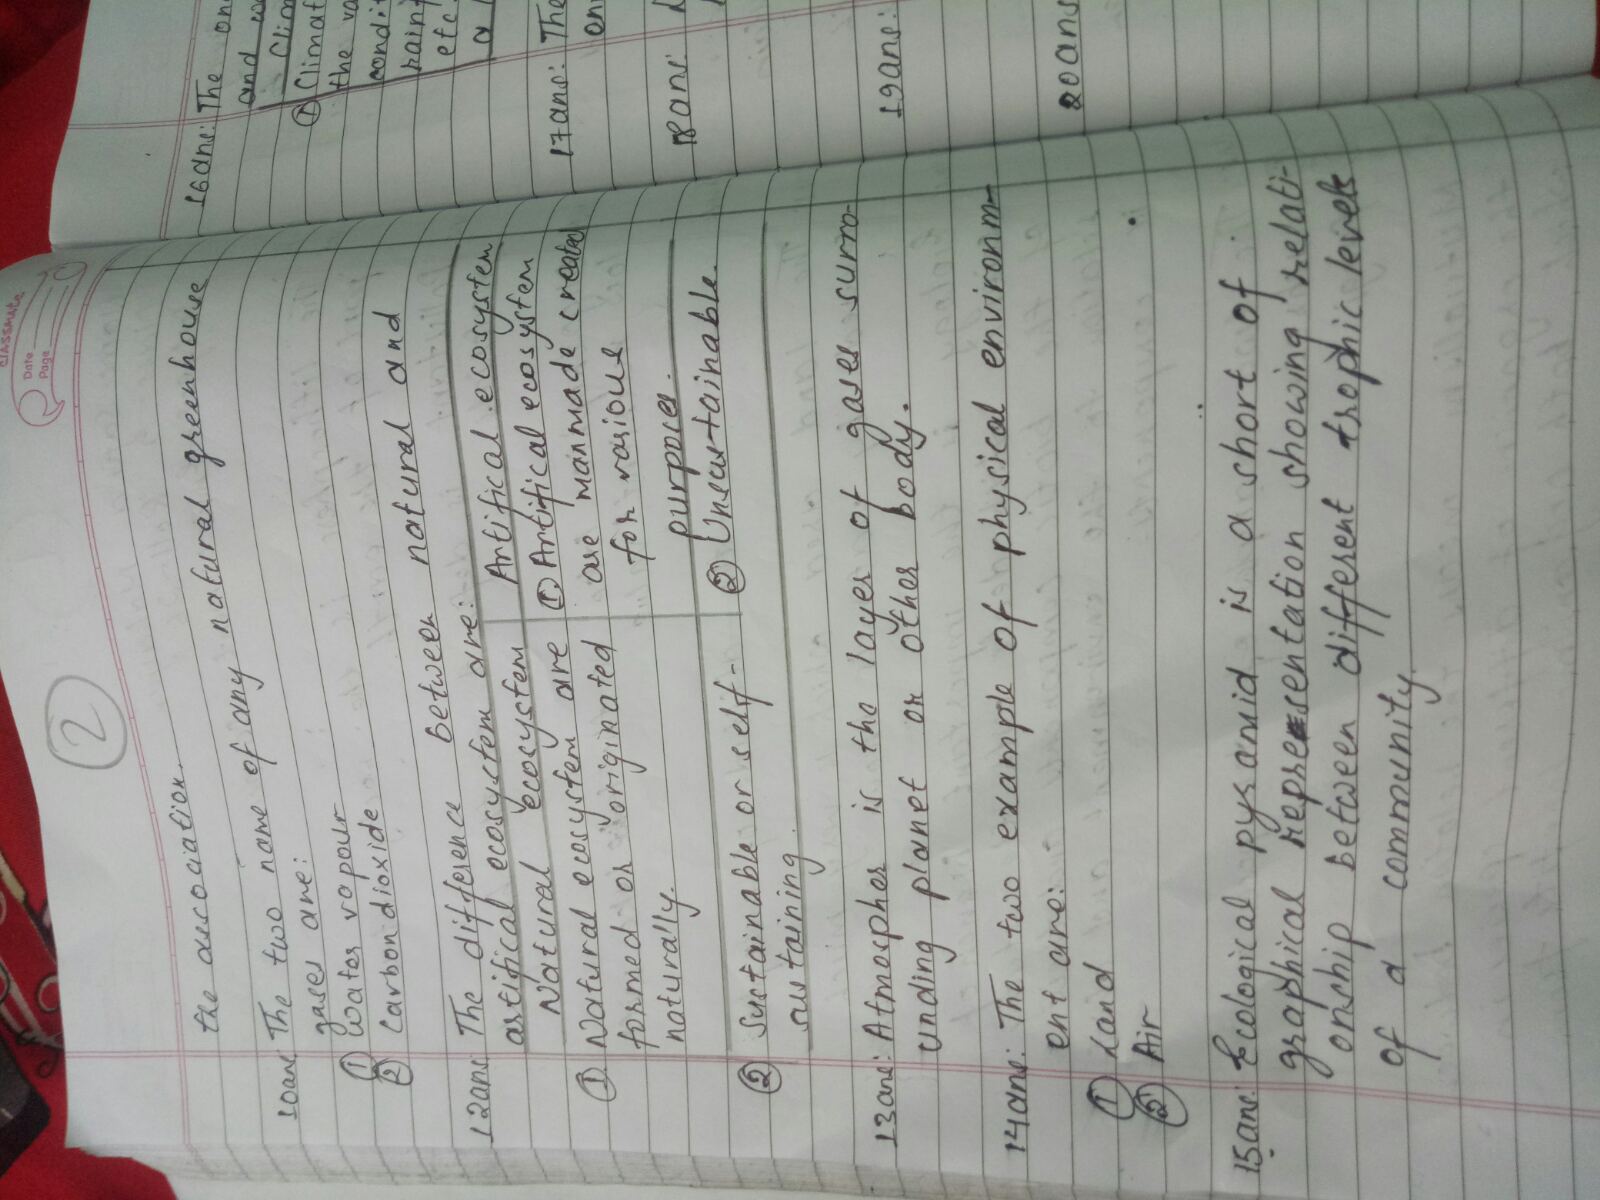 classmate
Date
Page
2
the association.
10ans: The two name of any natural greenhouse
gases are:
① Water vapour
② Carbondioxide
12ans: The difference between natural and
artifical ecosystem are:
Natural ecosystem | Artifical ecosystem
① Natural ecosystem are | ① Artifical ecosystem
formed or originated | are manmade created
naturally. | for various
purposes.
② Sustainable or self- | ② Unsustainable.
sustaining
13ans: Atmospher is the layer of gases surro-
unding planet or other body.
14ans: The two example of physical environm-
ent are:
① Land
② Air
15ans: Ecological pysamid is a short of
graphical representation showing relati-
onship between different trophic levels
of a community.
16ans: The
and
Clim
① Climat
the va
condit
rain
etc.
a
17ans: The
on
18ans:
19ans:
20ans